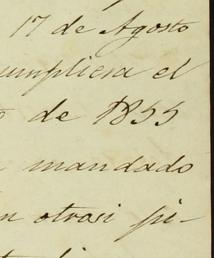 17 de Agosto
umpliera el
de 1855
mandado
n otrosi pi-